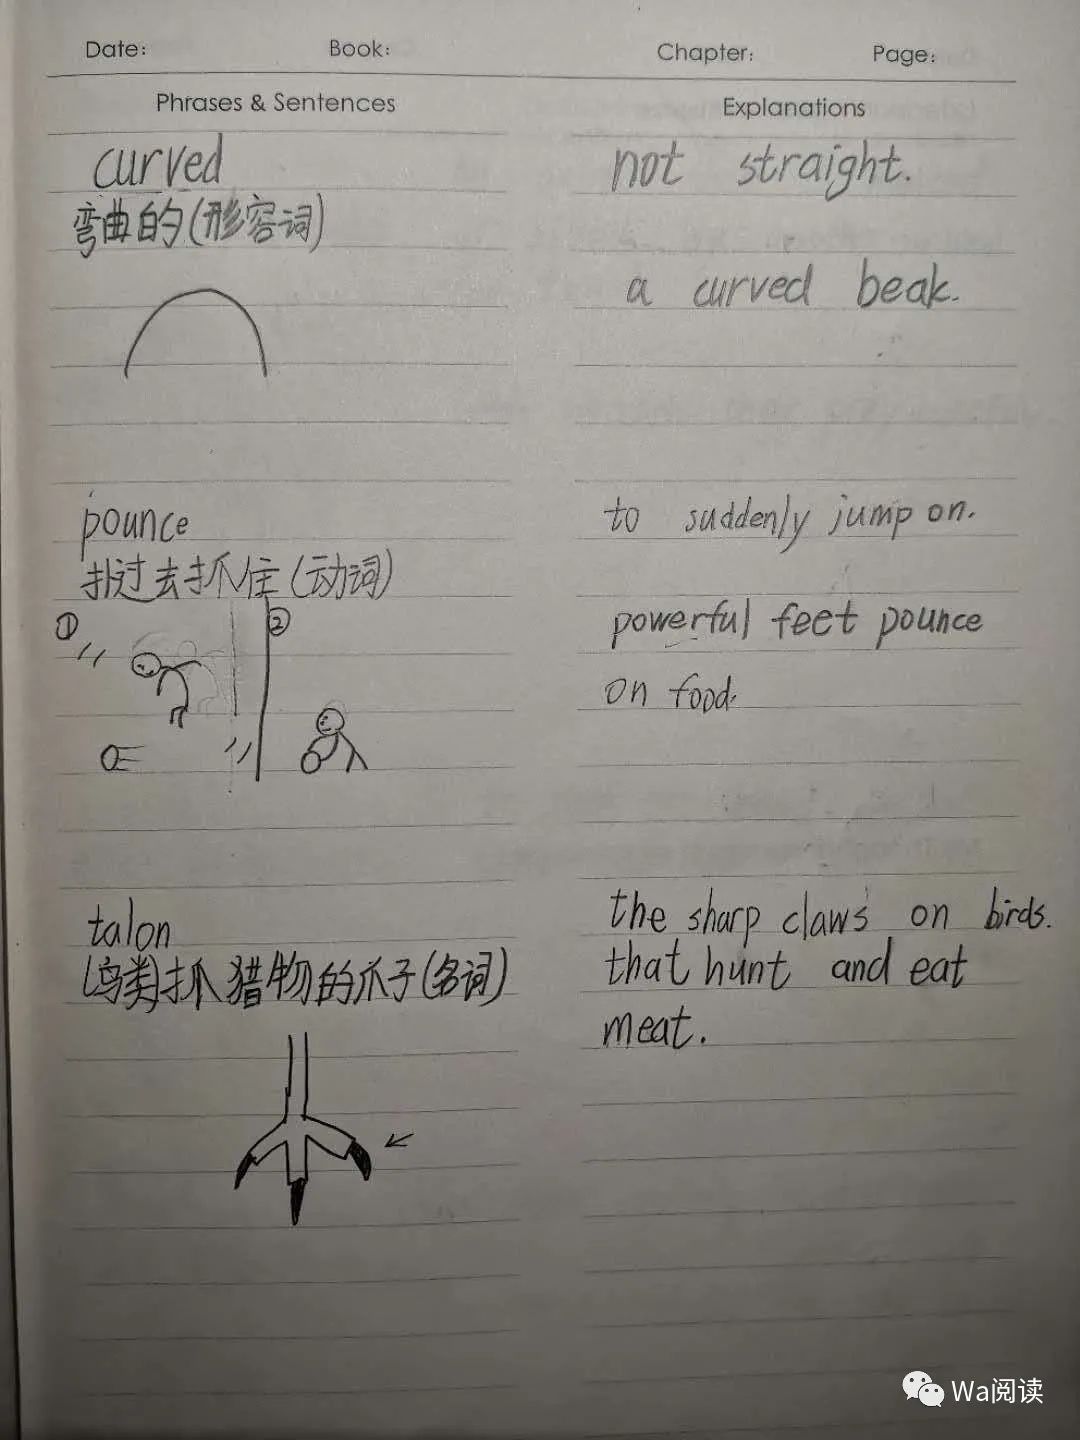 Date: Book: Chapter: Page:
Phrases & Sentences
Explanations
curved
弯曲的(形容词)
not straight.
a curved beak.
pounce
扑过去抓住(动词)
①
②
to suddenly jump on.
powerful feet pounce
on food.
talon
(鸟类)抓猎物的爪子(名词)
the sharp claws on birds.
that hunt and eat
meat.
Wa阅读